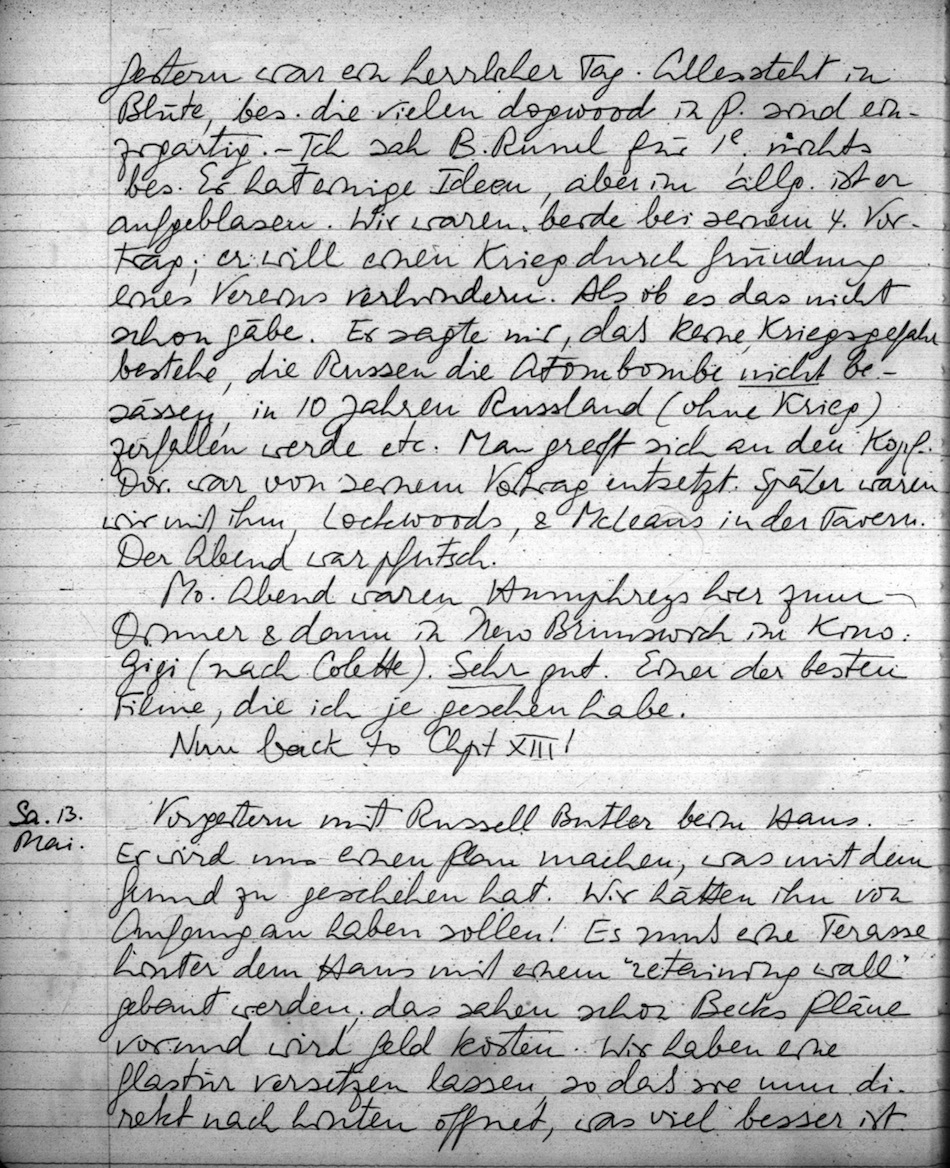 Gestern war ein herrlicher Tag. Alles steht in
Blüte, bes. die vielen dogwood in P. sind ein-
zigartig. – Ich sah B. Russel für 1e. nichts
bes. Er hat einige Ideen, aber im allg. ist er
aufgeblasen. Wir waren beide bei seinem 4. Vor-
trag; er will einen Krieg durch Gründung
eines Vereins verhindern. Als ob es das nicht
schon gäbe. Er sagte mir, das keine Kriegsgefahr
bestehe, die Russen die Atombombe nicht be-
sässen, in 10 Jahren Russland (ohne Krieg)
zerfallen werde etc. Man greift sich an den Kopf.
Dor. war von seinem Vortrag entsetzt. Später waren
wir mit ihm, Lockwoods, & McLeans in der Tavern.
Der Abend war pfutsch.
Mo. Abend waren Humphreys hier zum
Dinner & dann in New Brunswick im Kino.
Gigi (nach Colette). Sehr gut. Einer der besten
Filme, die ich je gesehen habe.
Nun back to Chpt XIII!
Sa. 13.
Mai.
Vorgestern mit Russell Butler beim Haus.
Er wird uns einen Plan machen, was mit dem
Grund zu geschehen hat. Wir hätten ihn von
Anfang an haben sollen! Es muss eine Terasse
hinter dem Haus mit einem "retaining wall"
gebaut werden; das sahen schon Becks Pläne
vor und wird Geld kosten. Wir haben eine
Glastür versetzen lassen, so das sie nun di-
rekt nach hinten öffnet, was viel besser ist.